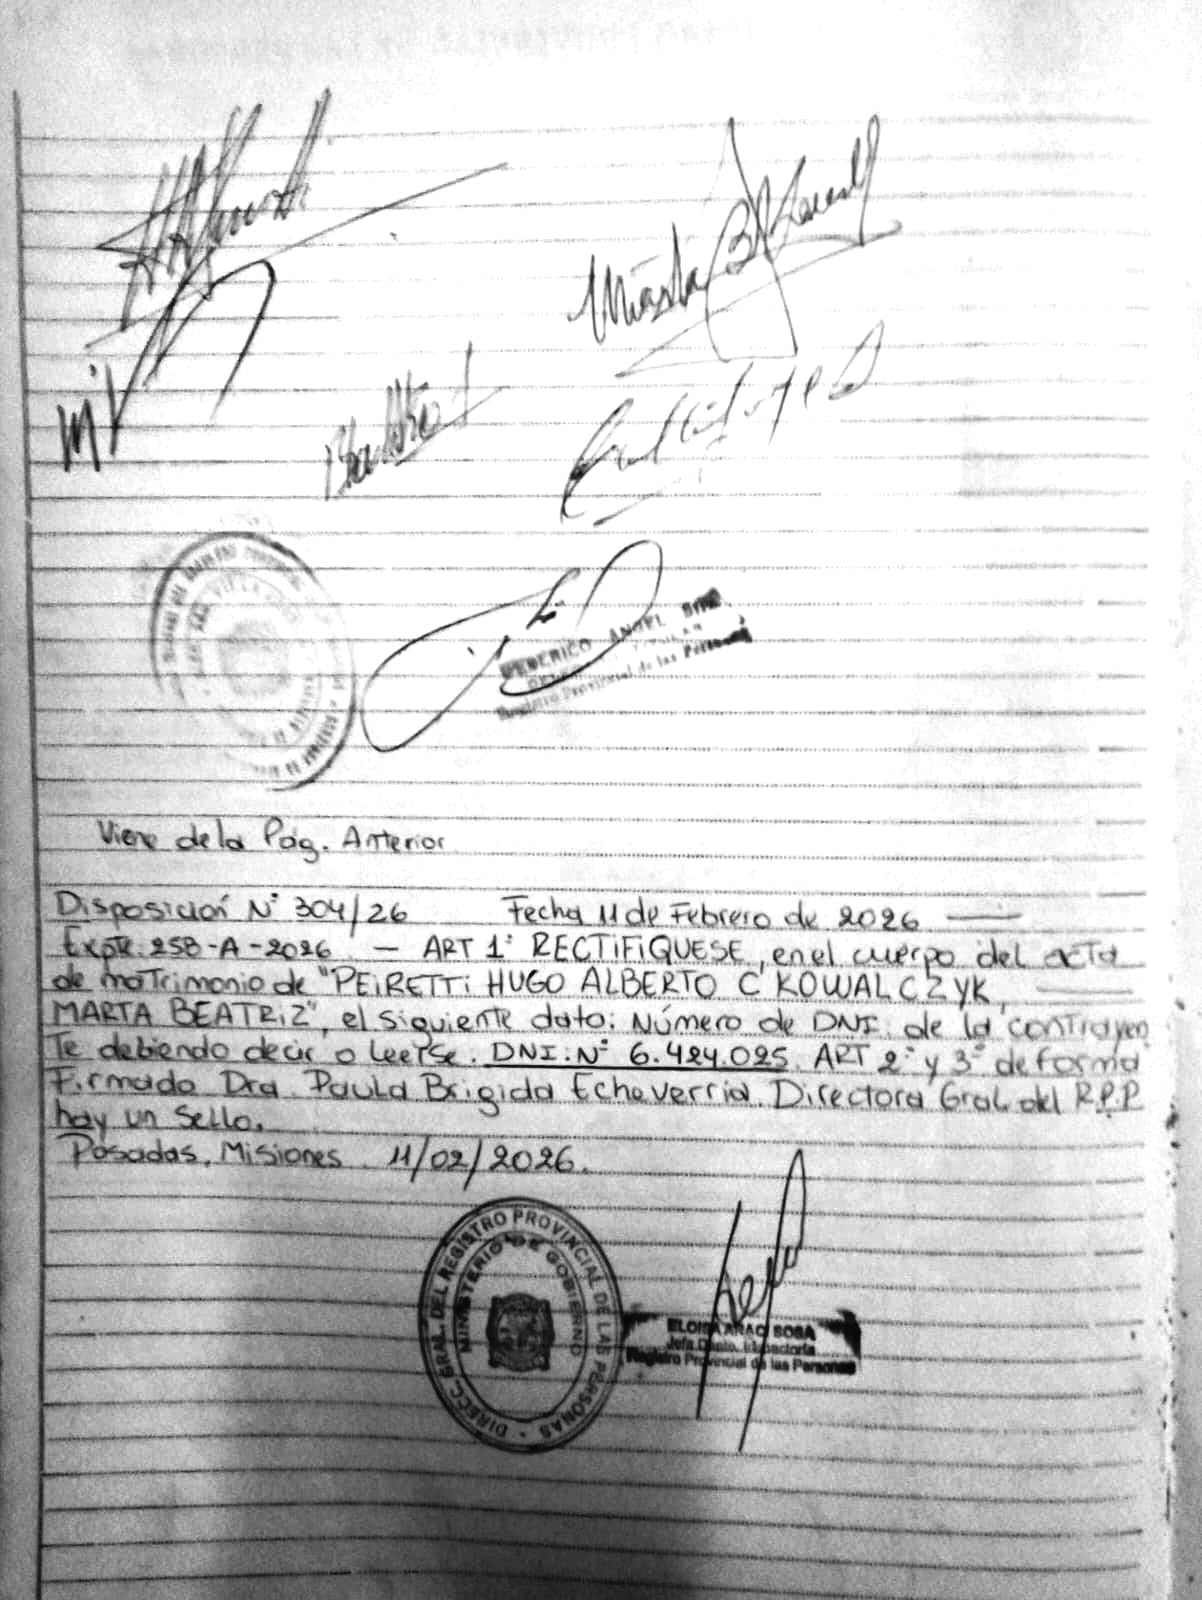 Marta B
FEDERICO ANGEL
Registro Provincial de las Personas
Viene de la Pág. Anterior
Disposición N° 304/26 Fecha 11 de Febrero de 2026
Expte. 258-A-2026 — ART 1° RECTIFIQUESE, en el cuerpo del acta
de matrimonio de "PEIRETTI HUGO ALBERTO C KOWALCZYK,
MARTA BEATRIZ", el siguiente dato: Número de DNI. de la contrayen
te debiendo decir o leerse. DNI: N° 6.424.025. ART 2° y 3° de forma
Firmado Dra. Paula Brigida Echeverria. Directora Gral. del R.P.P
hay un sello.
Posadas, Misiones 11/02/2026.
DIRECC. GRAL. DEL REGISTRO PROVINCIAL DE LAS PERSONAS
MINISTERIO DE GOBIERNO
ELOISA ARACI SOSA
Jefa Dpto. Inspectoría
Registro Provincial de las Personas